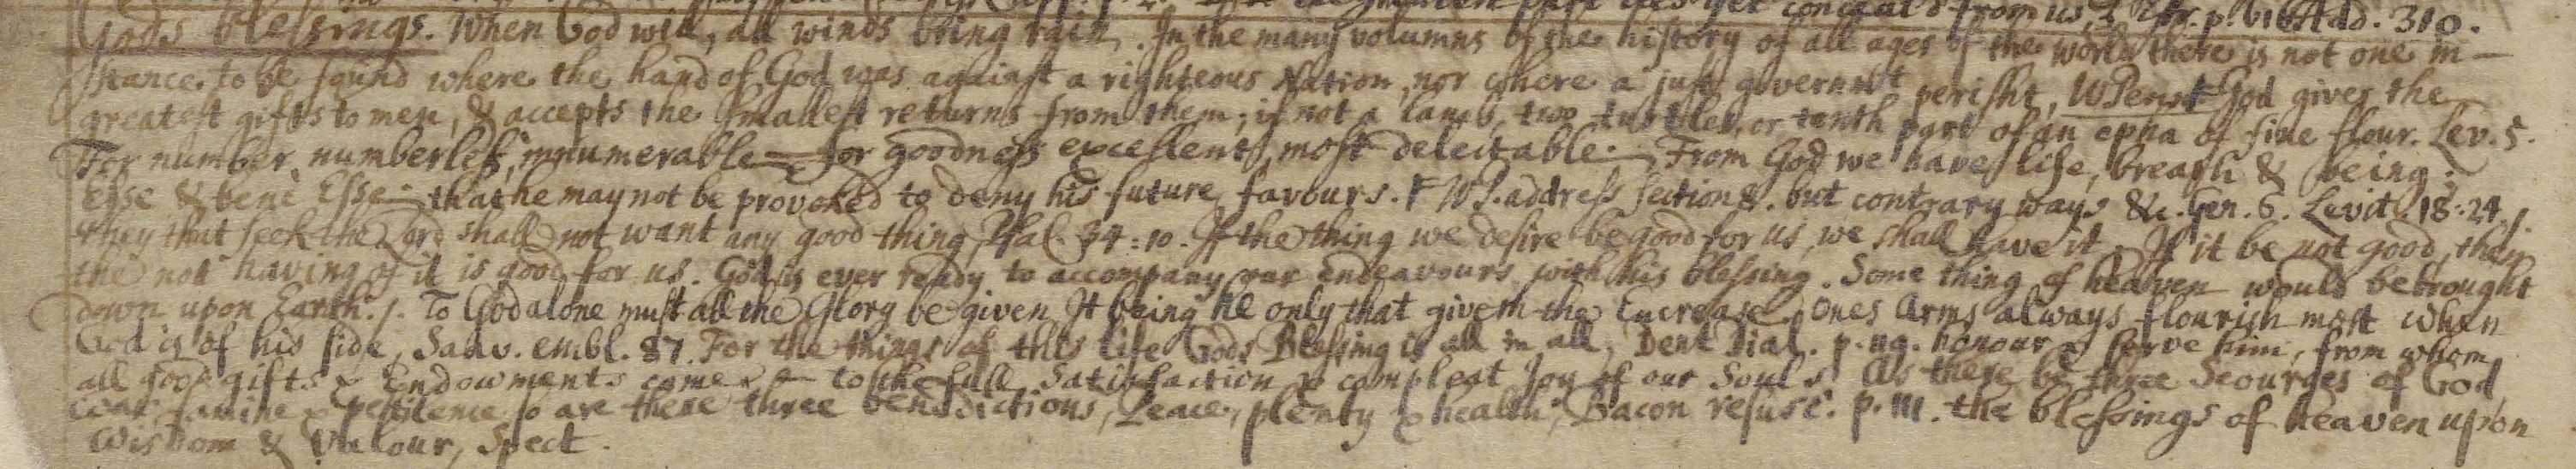 conceal'd from us, p. 616 Add. 310.
Gods blessings. When God will, all winds bring rain. In the many volumns of the history of all ages of the world there is not one in-
stance to be found where the hand of God was against a righteous Nation, nor where a just governmt perisht, WPenn God gives the
greatest gifts to men, & accepts the smallest returns from them; if not a lamb, two turtles, or tenth part of an epha of fine flour. Lev. 5.
For number numberless, innumerable for goodness excellent, most delectable. From God we have life, breath & being;
Esse & bene Esse that he may not be provoked to deny his future favours. WP. address section 8. but contrary ways &c. Gen. 6. Levit. 18:24.
they that seek the Lord shall not want any good thing, Psal. 34:10. If the thing we desire be good for us, we shall have it. If it be not good, then
the not having of it is good for us. God is ever ready to accompany our endeavours with his blessing. Some thing of heaven would be brought
down upon Earth. To God alone must all the Glory be given It being he only that giveth the Encrease. Ones Arms always flourish most when
God is of his side, Saav. embl. 87. For the things of this life Gods Blessing is all in all, Dent Dial. p. 119. honour & serve him, from whom
all good gifts & Endowments come & to the full Satisfaction & compleat Joy of our Souls. As there be three Scourges of God,
war famine & pestilence so are there three benedictions, Peace, plenty & health, Bacon resusc. p. 111. the blessings of heaven upon
Wisdom & Valour, Spect.